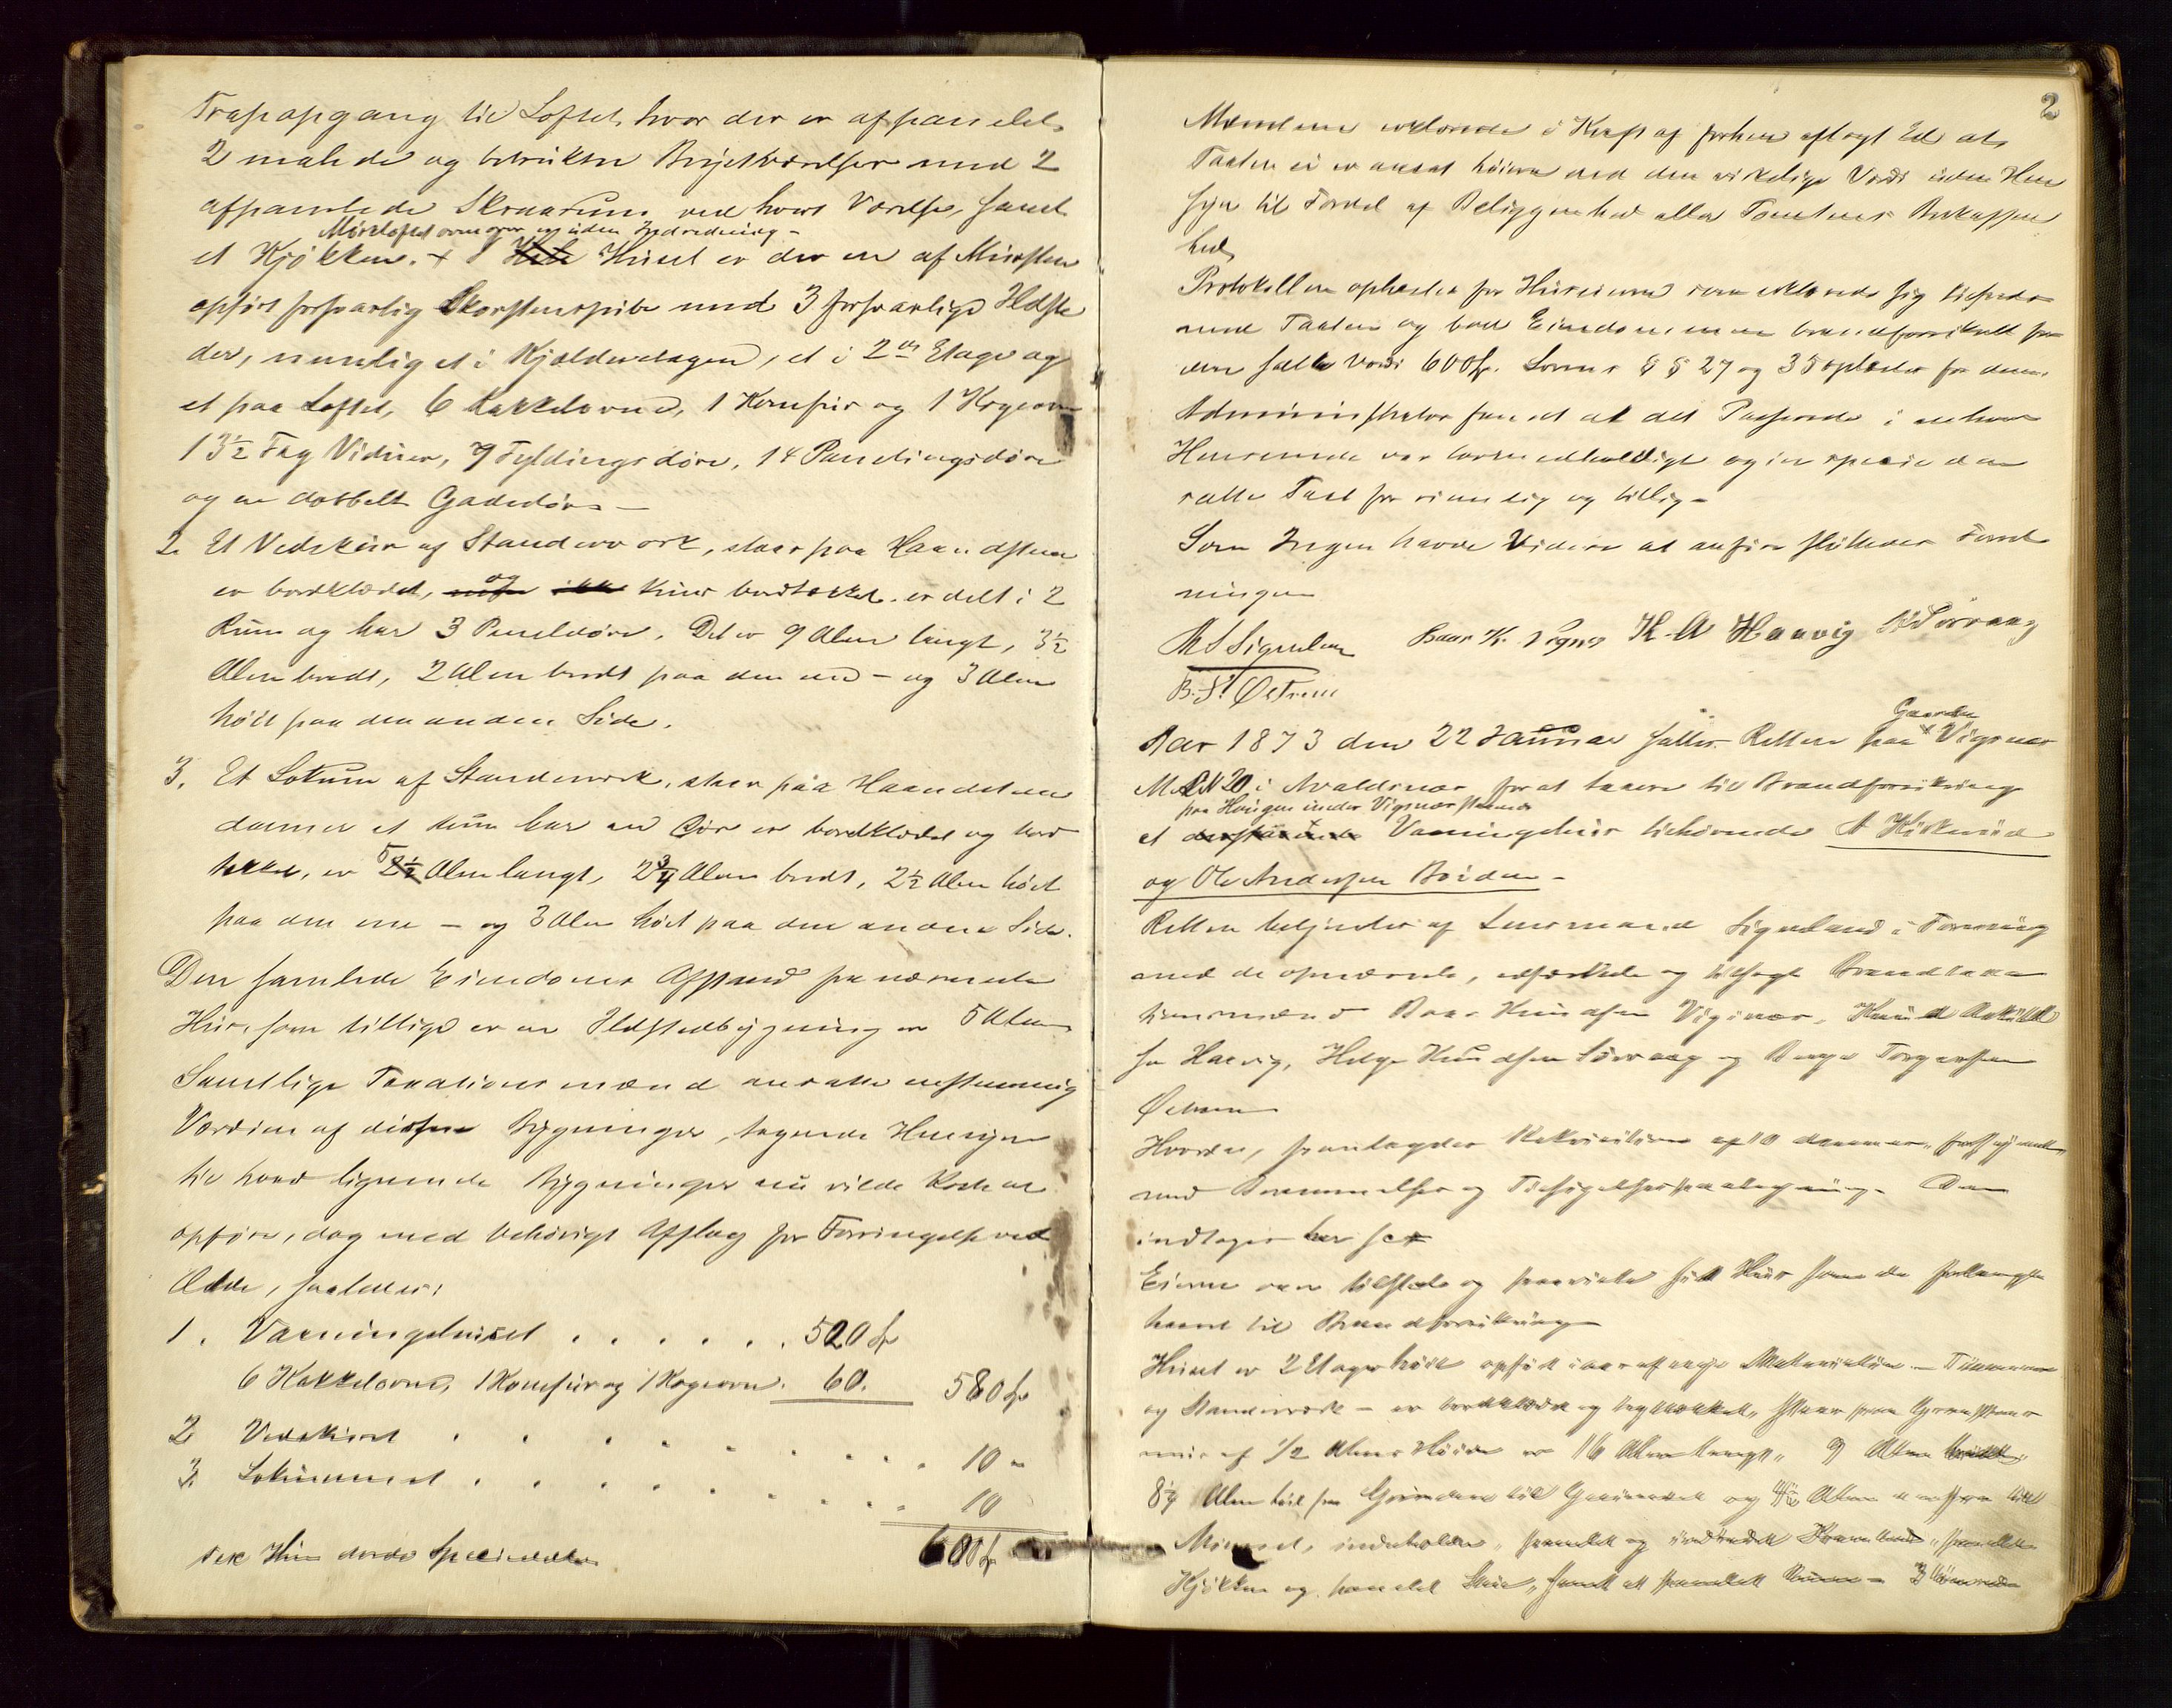 Trapopgang til Loftet, hvor der er afpanelet
2 malede og betrukne Beqvemmeligheder med 2
afpanelede Skraarum ved hvert Værelse, samt
Mørkloftet ovenover er uden Indredning -
et Kjøkken. + I Huset er der en af Mursten
opført forsvarlig Skorstenspibe med 3 forsvarlige Ildste
der, nemlig et i Kjælderetagen, et i 2den Etage og
et paa Loftet, 6 Kakkelovne, 1 Komfur og 1 Kogeovn
13½ Fag Vinduer, 9 Fyldingsdøre, 14 Panelingsdøre
og en dobbelt Gadedør -
2. Et Vedskur af Standerværk, staar paa Haandstene
er bordklædet, og bordtækket er delt i 2
Rum og har 3 Paneldøre. Det er 9 Alen langt, 3½
Alen bredt, 2 Alen bredt paa den ene - og 3 Alen
høit paa den anden Side.
3. Et Lokum af Standerværk, staar paa Haandstene
danner et Rum har en Dør er bordklædet og bord
tækket, er 5 Alen langt, 2¾ Alen bredt, 2½ Alen høit
paa den ene - og 3 Alen høit paa den anden Side.
Den samlede Eiendoms Afstand fra nærmeste
Huus, som tillige er en Ildstedbygning er 5 Alen
Samtlige Taxationsmænd ansatte eenstemmig
Værdien af disse Bygninger, tagende Hensyn
til hvad lignende Bygninger nu vilde koste at
opføre, dog med behørigt Afslag for Forringelse ved
Ælde, saaledes:
1. Vaaningshuset . . . . . . 520 Sp
6 Kakkelovne, 1 Komfur og 1 Kogeovn. 60. 580 Sp
2 Vedskuret . . . . . . . . . 10 "
3. Lokummet . . . . . . . . . 10
600 Sp
Sex Hundrede Speciedaler
2
Mændene erklærede i Kraft af forhen aflagt Ed at
Taxten ei er ansat høiere end den virkelige Værdi uden Hen
syn til Fordel af Beliggenhed eller Tomtens Beskaffen
hed
Protokollen oplæstes for Huseieren som erklærede sig tilfreds
med Taxten og bad Eiendommen brandforsikret for
den satte Værdi 600 Sp. Lovens §§ 27 og 35 oplæstes for dem.
Administrator fandt at det Passerede i enhver
Henseende var lovmedholdigt og in specie den
satte Taxt for rimelig og billig -
Som Ingen havde Videre at anføre sluttedes Forret
ningen
M S Sigvelsen Baar K. Vignes K. A Haavig H K Sørvaag
B. T. Østrem
Gaarden
Aar 1873 den 22 Januar sattes Retten paa Vigsnæs
M. L N 20 i Avaldsnæs for at taxere til Brandforsikring
paa Haugen under Vigsnæs staaende
et Vaaningshuus tilhørende A Høikenæs
og Ole Andersen Bviden -
Retten betjentes af Lensmand Sigveland i Forening
med de opnævnte, edfæstede og tilsagte Brandtaxa
tionsmænd Baar Knudsen Vigsnæs, Knud Askild
sen Haavig, Helge Knudsen Sørvaag og Berge Torgersen
Østrem
Hvorda, fremlagdes Rekvisition af 10 dennes, forsynet
med Berammelse og Tilsigelsespaategning. Den
indtages her saa
Eierne vare tilstede og paaviste sit Huus som de forlangte
taxeret til Brandforsikring
Huset er 2 Etager høit opført iaar af nye Materialier - Tømmer
og Standerværk - er bordklædt og tegltækket, staar paa Graastens
muur af ½ Alens Høide er 16 Alen langt, 9 Alen bredt
8¼ Alen høit fra Grunden til Gesimset og Alen derfra til
Mønset, indeholder, panelet og Krambod, panelet
Kjøkken og panelet Stue, samt et panelet Rum - 3